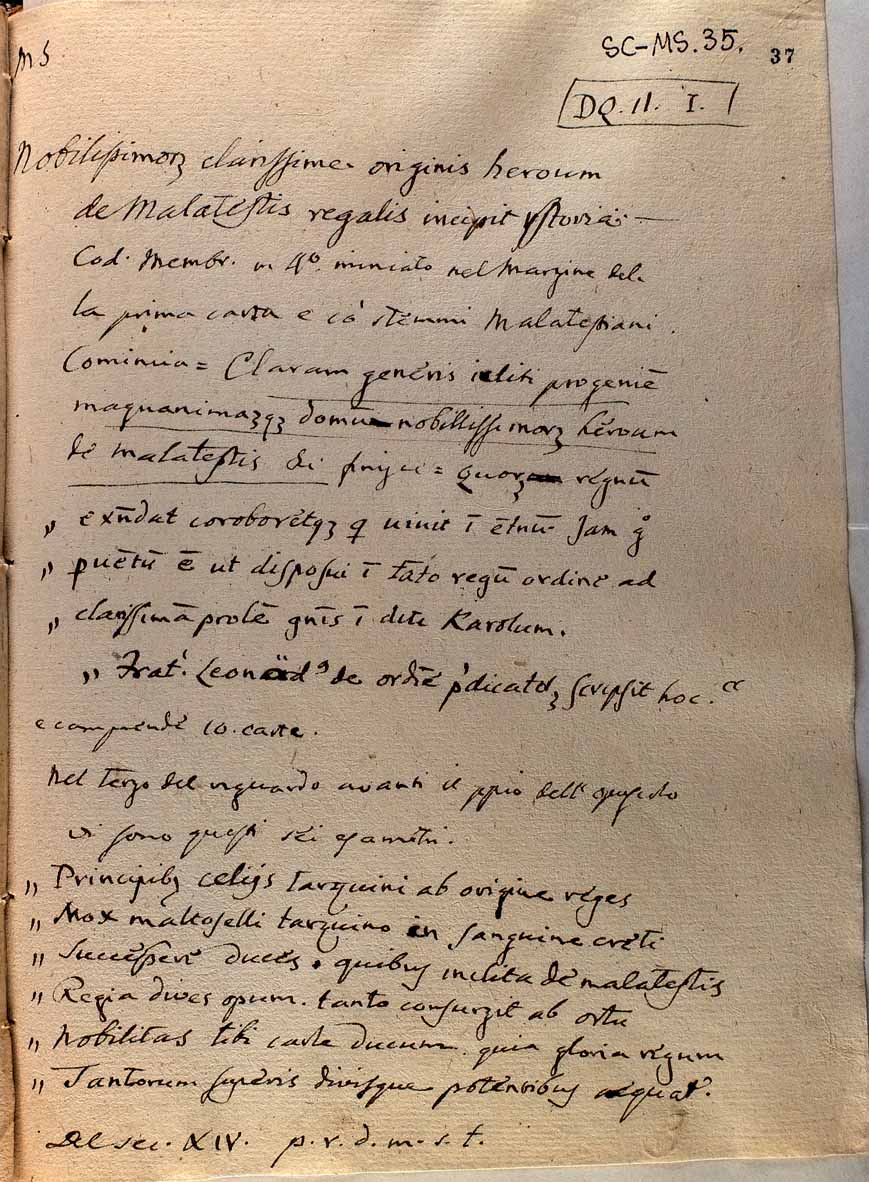 MS
SC-MS.35. 37
DQ. II. I.
Nobilissimorꝫ clarissime originis heroum
de Malatestis regalis incipit ystoria: —
Cod. Membr. in 4º. miniato nel Margine del
la prima carta e cō stemmi Malatestiani.
Comincia = Claram generis icliti progeniē
magnanimaꝫqꝫ domū nobillissimorꝫ heroum
de malatestis di finisce = quorꝫ regnū
„ exn̄dat coroboretqꝫ q uiuit ī eтnū Jam
„ puētū ē ut disposui ī tāto regū ordine ad
„ clarissimā prolē gnīs ī diti Karolum.
„ Frat. Leonard9 de ordīe p̄dicatorꝫ scripsit hoc.
e comprende 10. carte.
Nel terzo del riguardo avanti il ppio dell' opuscolo
vi sono questi sei esametri.
„ Principibꝫ celijs tarquini ab origine reges
„ Mox maltoselli tarquino in sanguine creti
„ Successere duces. quibus inclita de malatestis
„ Regia dives opum. tanto consurgit ab ortu
„ Nobilitas tibi carle ducum. quia gloria regum
„ Tantorum superis divisque potentibus equat.
Del sec. XIV. p. r. d. m. s. t.